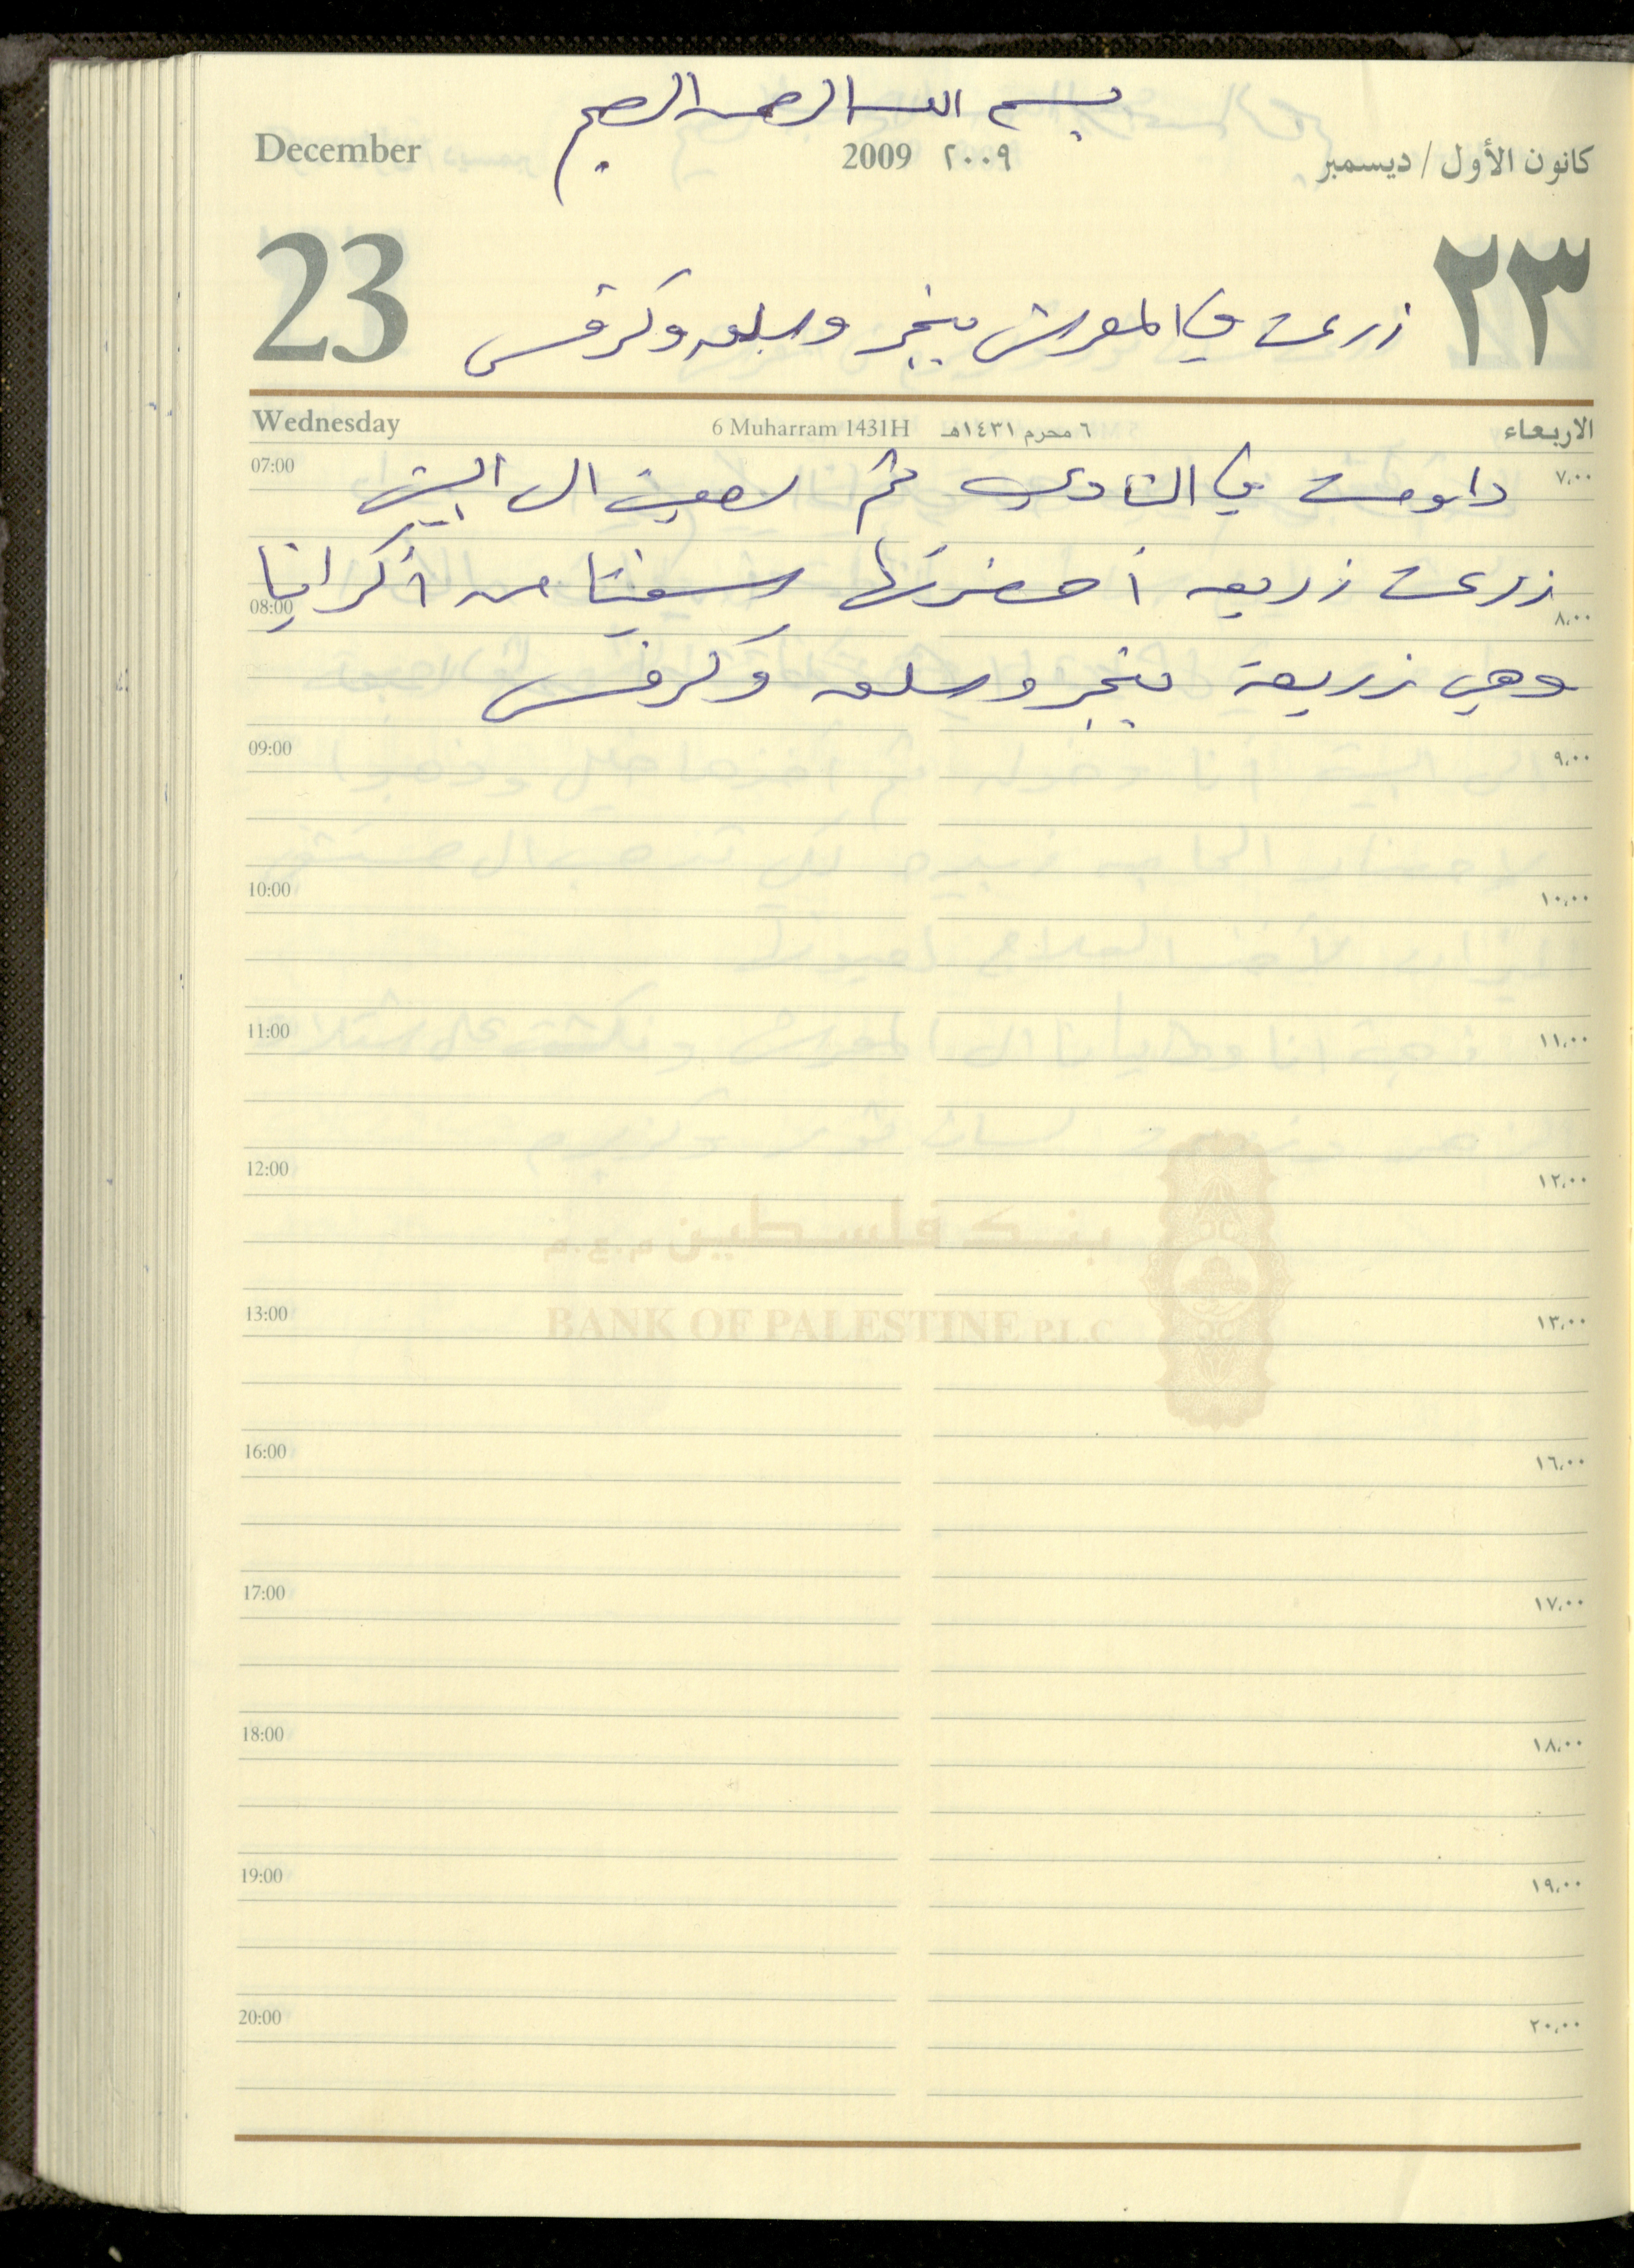 بسم الله الرحمن الرحيم
December 2009 ٢٠٠٩ كانون الأول / ديسمبر
23 ٢٣
زرعت في المعرش بنجر وسلق وكرفس
Wednesday 6 Muharram 1431H ٦ محرم ١٤٣١هـ الاربعاء
07:00 ٧،٠٠
داومت في النادي ثم الى البيت
زرعت زريعه أحضرتها من أكرانيا
08:00 ٨،٠٠
وهي زريعة بنجر وسلق وكرفس
09:00 ٩،٠٠
10:00 ١٠،٠٠
11:00 ١١،٠٠
12:00 ١٢،٠٠
بنك فلسطين م.ع.م
13:00 ١٣،٠٠
BANK OF PALESTINE P.L.C
16:00 ١٦،٠٠
17:00 ١٧،٠٠
18:00 ١٨،٠٠
19:00 ١٩،٠٠
20:00 ٢٠،٠٠